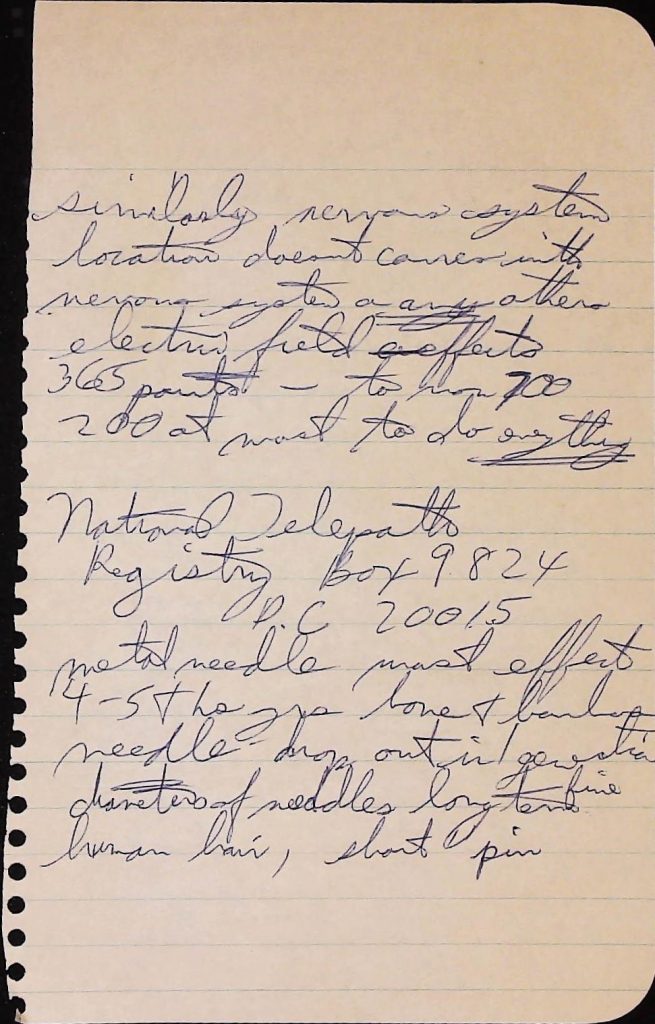 similarly nervous system
location doesnt with
nervous system or any others
electric field effects
365 points — to now 700
200 at most to do anything
National Telepaths
Registry Box 9824
D.C 20015
metal needle most effect
4-5 tho yrs bone + bamboo
needle drop out in 1 generation
diameters of needles long term fine
human hair, short pin